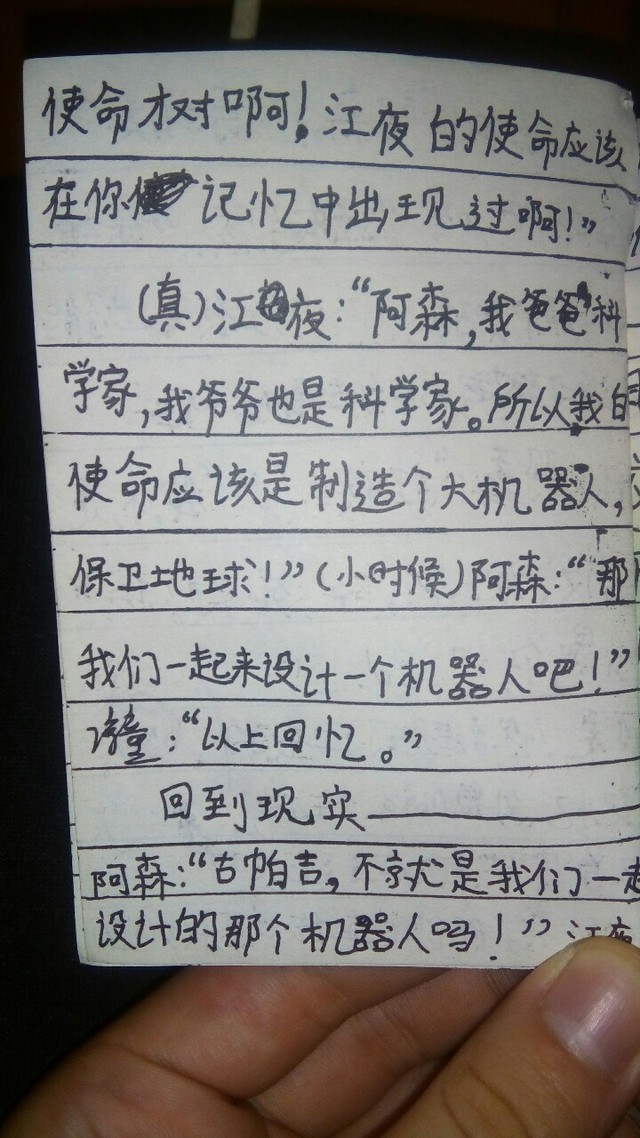 使命树啊！江夜的使命应该
在你记忆中出现过啊！”
（真）江夜：“阿森，我爸爸科
学家，我爷爷也是科学家。所以我的
使命应该是制造个大机器人，
保卫地球！”（小时候）阿森：“那
我们一起来设计一个机器人吧！”
潼：“以上回忆。”
回到现实——
阿森：“古帕吉，不就是我们一起
设计的那个机器人吗！”江夜